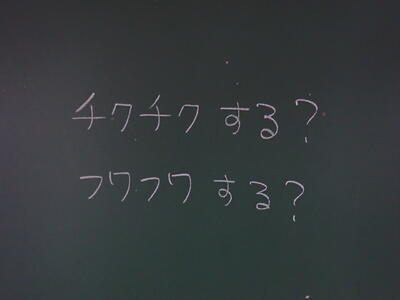 チクチクする?
フワフワする?